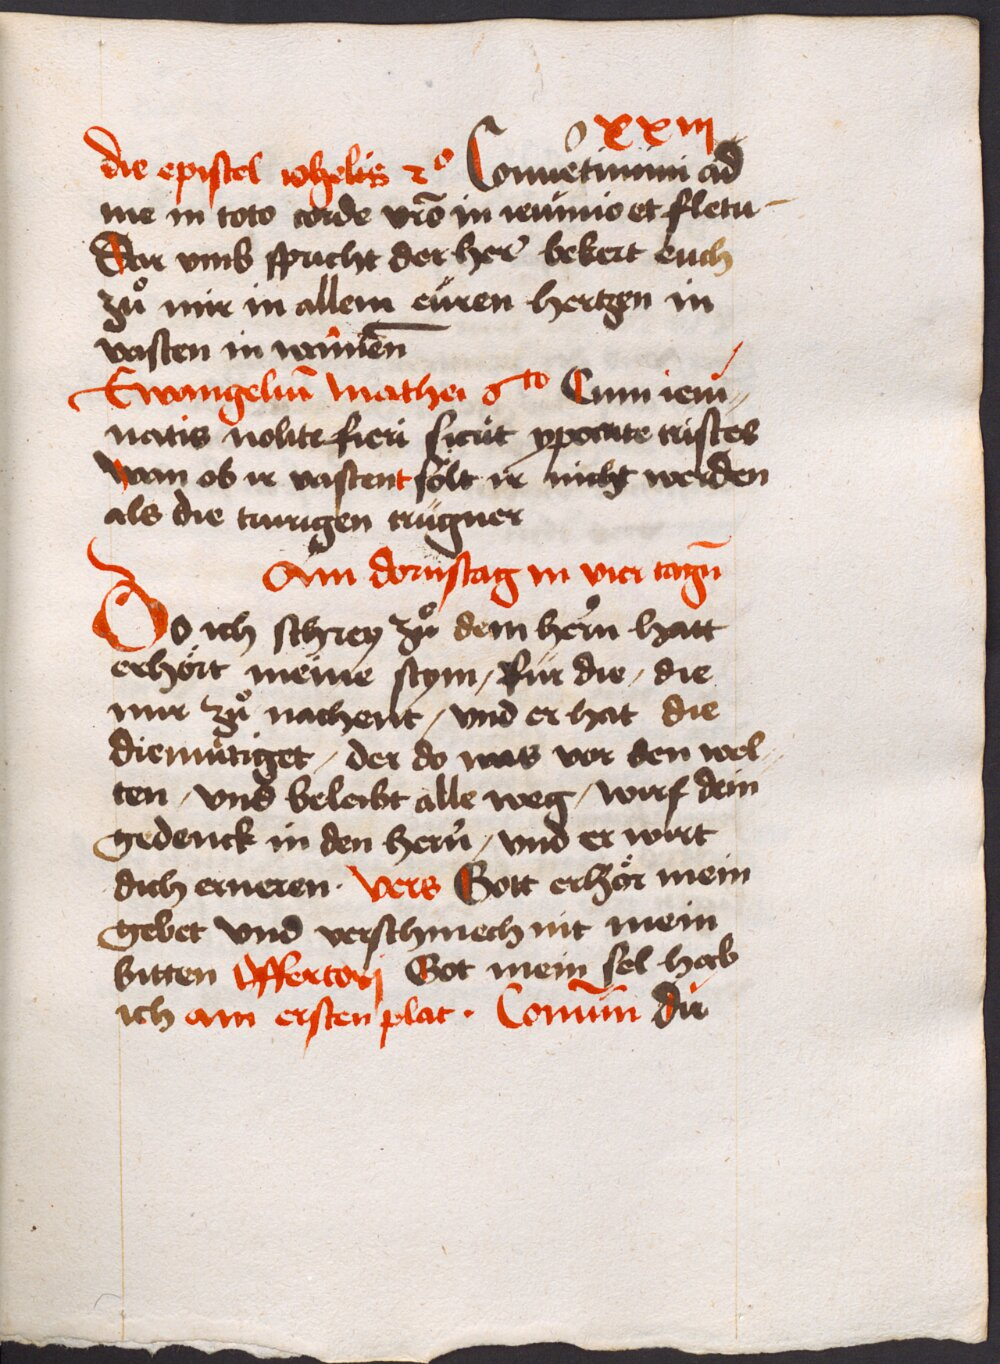 xxiii
die epistel iohelis 2o Conuertimini ad
me in toto corde vr̄o in ieiunio et fletu
Dar vmb spricht der her bekert euch
zuͦ mir in allem euren hertzen in
vasten in wainen
Ewangeliū mathei 6to Cum ieiu„
natis nolite fieri sicut ypocrite tristes
wan ob ir vastent sölt ir nicht werden
als die traurigen trügner
Am dornstag in vier tagn̄
Do ich schrey zuͦ dem hern hatt
erhört meine stym / für die / die
mir zuͦ nachent / vnd er hat die
diemütiget / der do was vor den wel„
ten / vnd beleibt alle weg / wirf dein
gedenck in den hern / vnd er wirt
dich erneren · vers Gott erhör mein
gebet vnd verschmech nit mein
bitten Offertorj Got mein sel hab
ich am ersten plat · Comūn dir